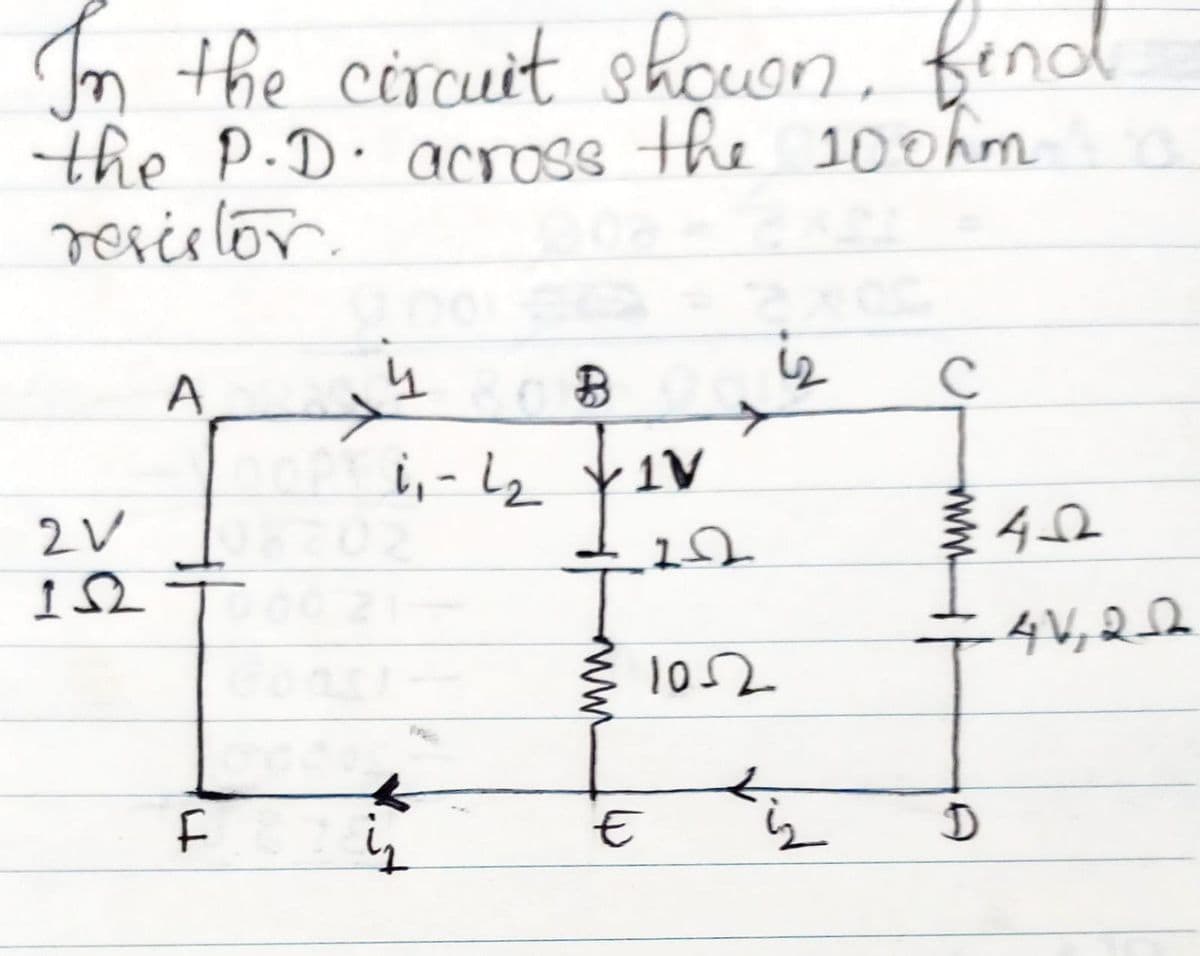 In the circuit shown, find
the P.D. across the 10 ohm
resistor.
A i1 B i2 C
i1 - i2 1V
2V 1Ω 4Ω
1Ω 4V, 2Ω
10Ω
F i1 E i2 D